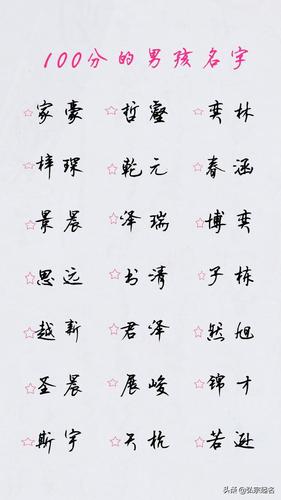 100分的男孩名字
家豪 哲壑 奕林
梓琛 乾元 春涵
景晨 泽瑞 博奕
思远 书清 子栋
越新 君泽 然旭
圣晨 展峻 锦才
斯宇 天杭 若逊
头条@弘宗起名